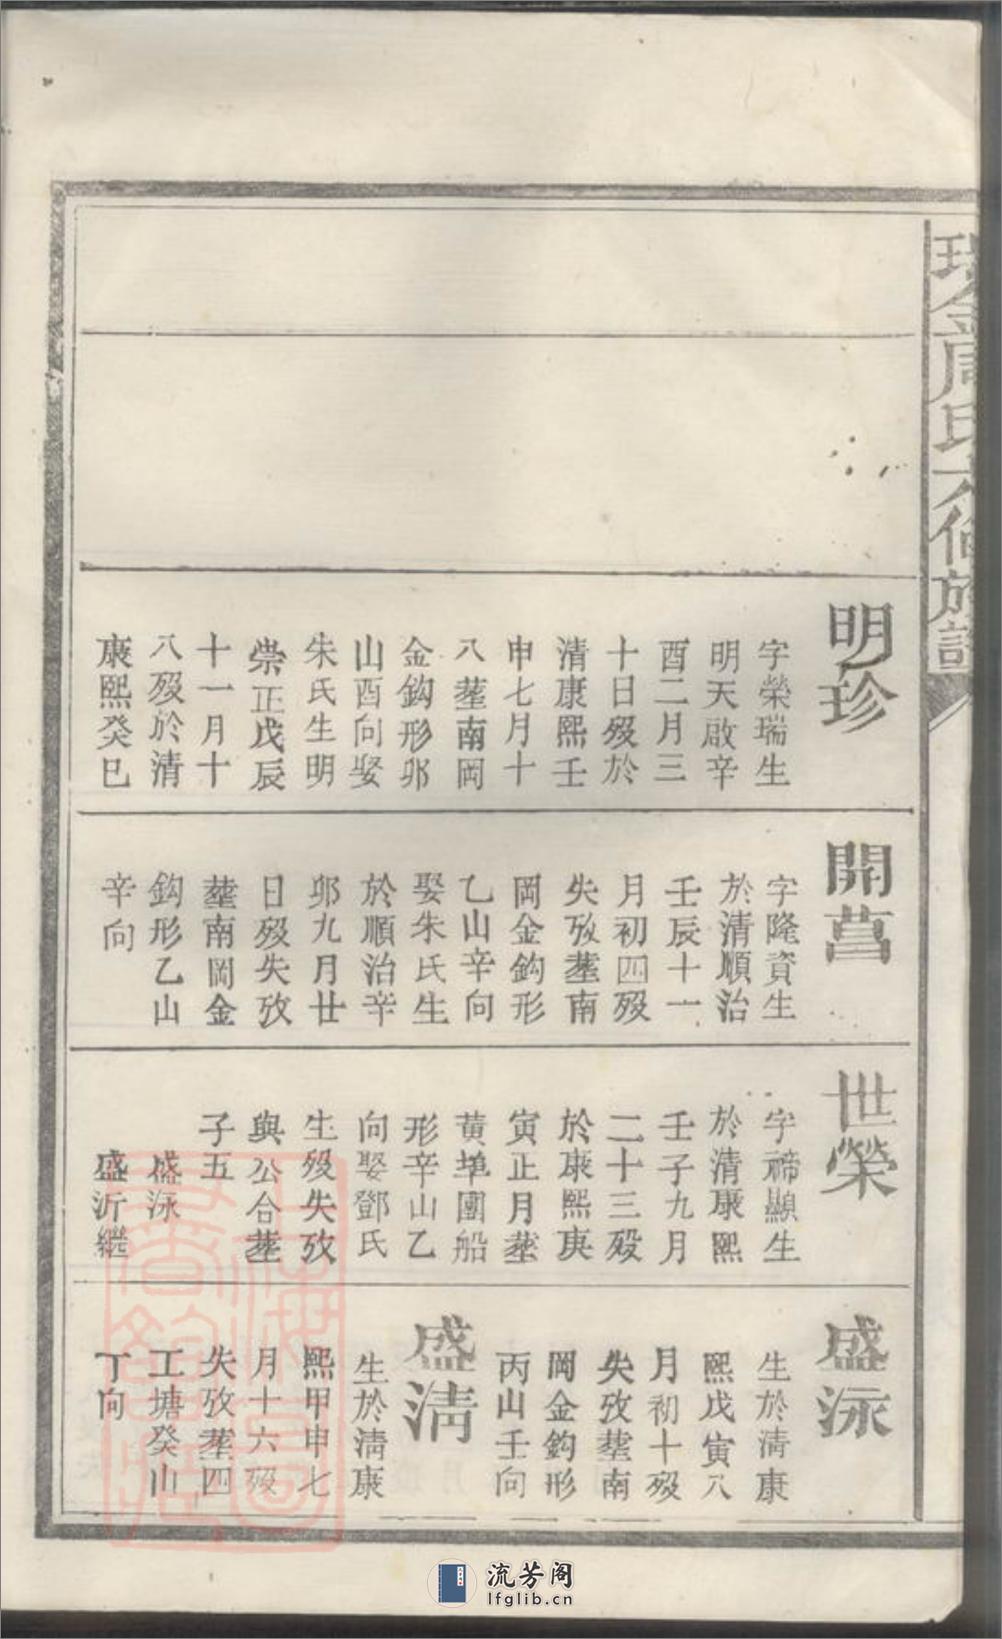 瑞金周氏六修族譜
明珍
字榮瑞生
明天啟辛
酉二月三
十日歿於
清康熙壬
申七月十
八塟南岡
金鈎形卯
山酉向娶
朱氏生明
崇正戊辰
十一月十
八歿於清
康熙癸巳
開菖
字隆資生
於清順治
壬辰十一
月初四歿
失攷塟南
岡金鈎形
乙山辛向
娶朱氏生
於順治辛
卯九月廿
日歿失攷
塟南岡金
鈎形乙山
辛向
世榮
字禘顯生
於清康熙
壬子九月
二十三歿
於康熙庚
寅正月塟
黄埠團船
形辛山乙
向娶鄧氏
生歿失攷
與公合塟
子五
盛泳
盛沂繼
盛泳
生於清康
熙戊寅八
月初十歿
失攷塟南
岡金鈎形
丙山壬向
盛淸
生於清康
熙甲申七
月十六歿
失攷塟四
工塘癸山
丁向
流芳阁
lfglib.cn